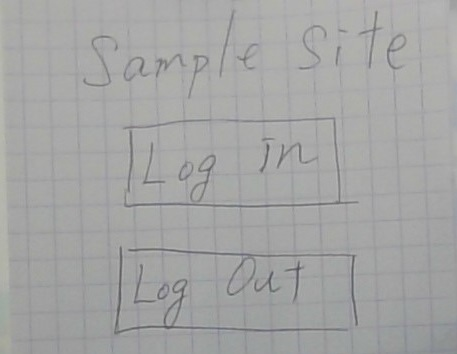 Sample Site
Log in
Log Out